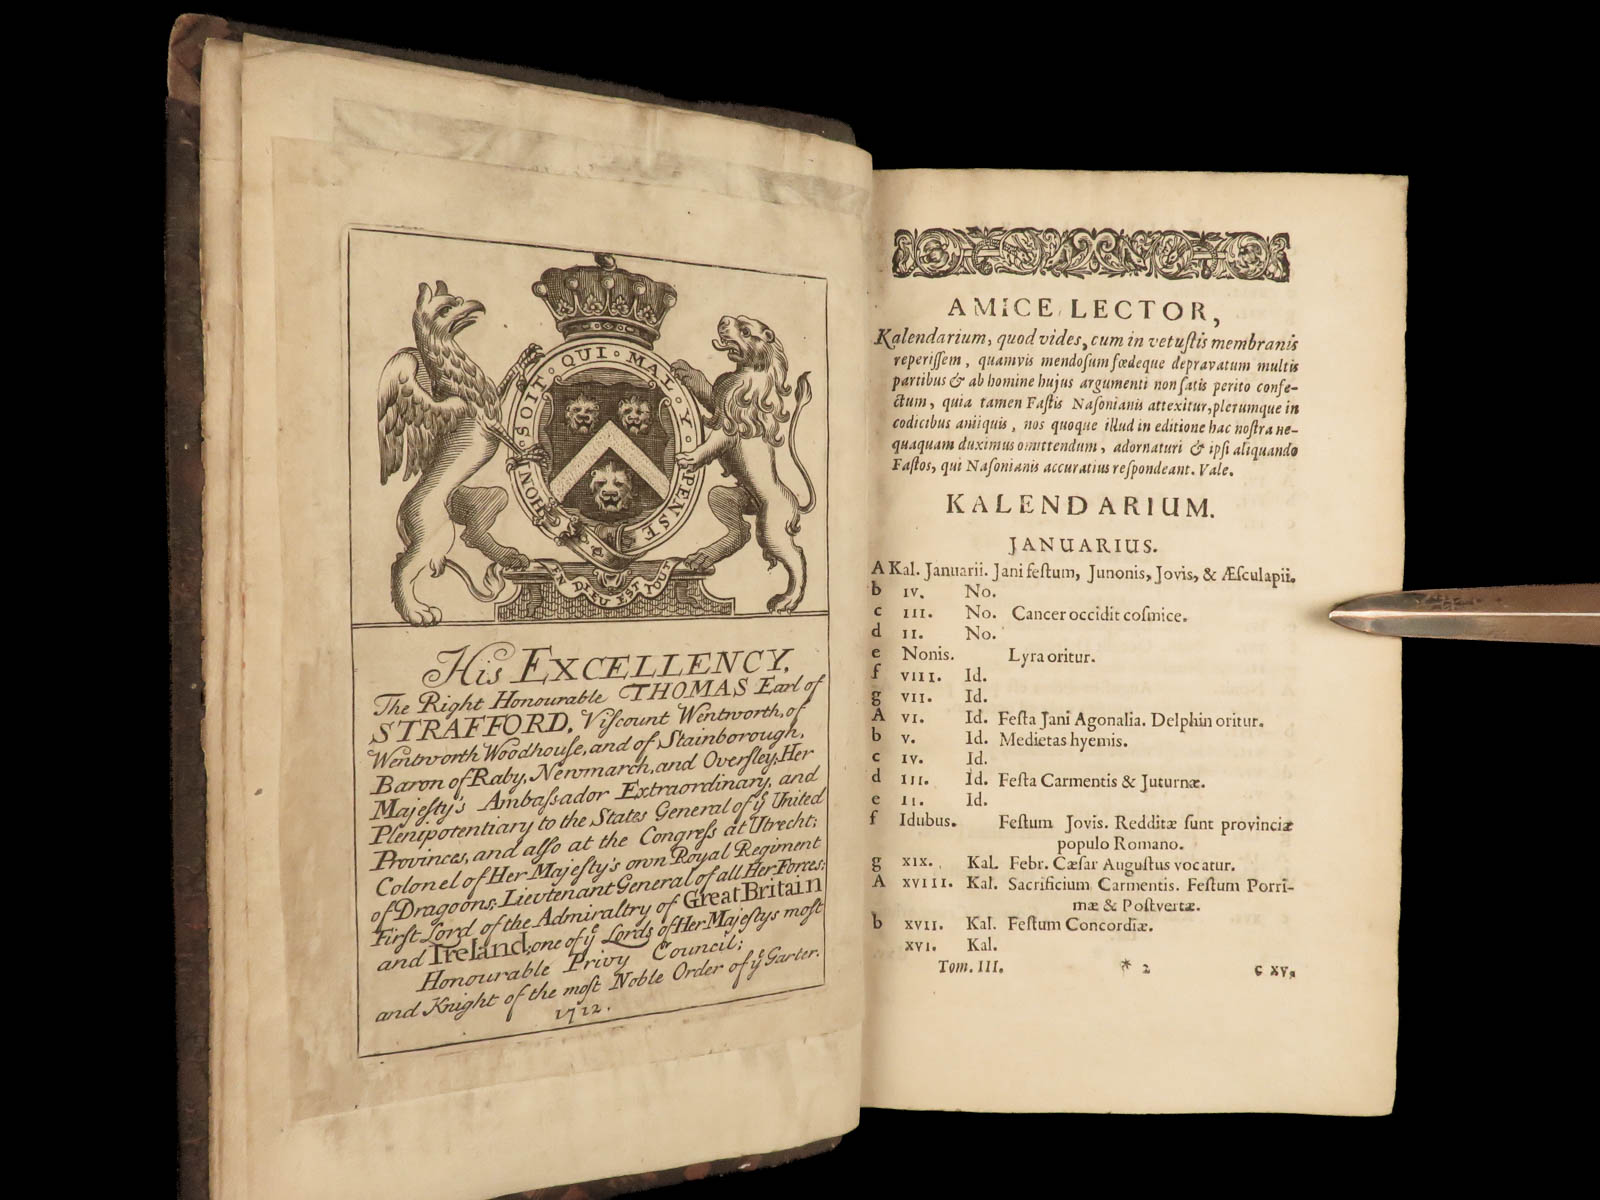 HONI · SOIT · QUI · MAL · Y · PENSE
EN DIEU EST TOUT
His EXCELLENCY,
The Right Honourable THOMAS Earl of
STRAFFORD, Viſcount Wentworth, of
Wentworth Woodhouſe, and of Stainborough,
Baron of Raby, Newmarch, and Overſley, Her
Majeſty's Ambaſsador Extraordinary, and
Plenipotentiary to the States General of yͤ United
Provinces, and alſo at the Congreſs at Utrecht;
Colonel of Her Majeſty's own Royal Regiment
of Dragoons; Lieutenant General of all Her Forces;
Firſt Lord of the Admiraltry of Great Britain
and Ireland; one of yͤ Lords of Her Majeſtys moſt
Honourable Privy Council;
and Knight of the moſt Noble Order of yͤ Garter.
1712.
AMICE LECTOR,
Kalendarium, quod vides, cum in vetuſtis membranis
reperiſſem, quamvis mendoſum fœdeque depravatum multis
partibus & ab homine hujus argumenti non ſatis perito confe-
ctum, quia tamen Faſtis Naſonianis attexitur, plerumque in
codicibus antiquis, nos quoque illud in editione hac noſtra ne-
quaquam duximus omittendum, adornaturi & ipſi aliquando
Faſtos, qui Naſonianis accuratius reſpondeant. Vale.
KALENDARIUM.
JANUARIUS.
A Kal. Januarii. Jani feſtum, Junonis, Jovis, & Æſculapii.
b IV. No.
c III. No. Cancer occidit coſmice.
d II. No.
e Nonis. Lyra oritur.
f VIII. Id.
g VII. Id.
A VI. Id. Feſta Jani Agonalia. Delphin oritur.
b V. Id. Medietas hyemis.
c IV. Id.
d III. Id. Feſta Carmentis & Juturnæ.
e II. Id.
f Idubus. Feſtum Jovis. Redditæ ſunt provinciæ
populo Romano.
g XIX. Kal. Febr. Cæſar Auguſtus vocatur.
A XVIII. Kal. Sacrificium Carmentis. Feſtum Porri-
mæ & Poſtvertæ.
b XVII. Kal. Feſtum Concordiæ.
XVI. Kal.
Tom. III. * 2 c XV,